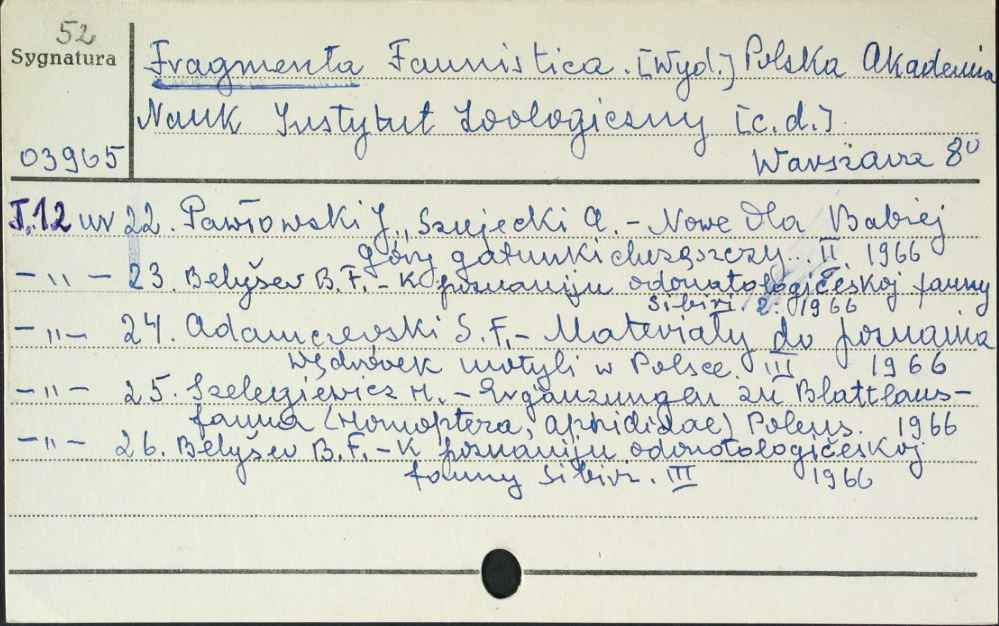 52
Sygnatura
Fragmenta Faunistica. [Wyd.] Polska Akademia
Nauk Instytut Zoologiczny [c.d.]
03965
Warszawa 8⁰
T.12 nr 22. Pawłowski J., Szujecki A. - Nowe dla Babiej
Góry gatunki chrząszczy... II. 1966
- " - 23. Belyšev B.F. - K poznaniju odonatologičeskoj fauny
Sibiri. 2. 1966
- " - 24. Adamczewski S.F. - Materiały do poznania
wędrówek motyli w Polsce. III 1966
- " - 25. Szelegiewicz H. - Ergänzungen zu Blattlaus-
fauna (Homoptera, Aphididae) Polens. 1966
- " - 26. Belyšev B.F. - K poznaniju odonotologičeskoj
fauny Sibiri. III 1966